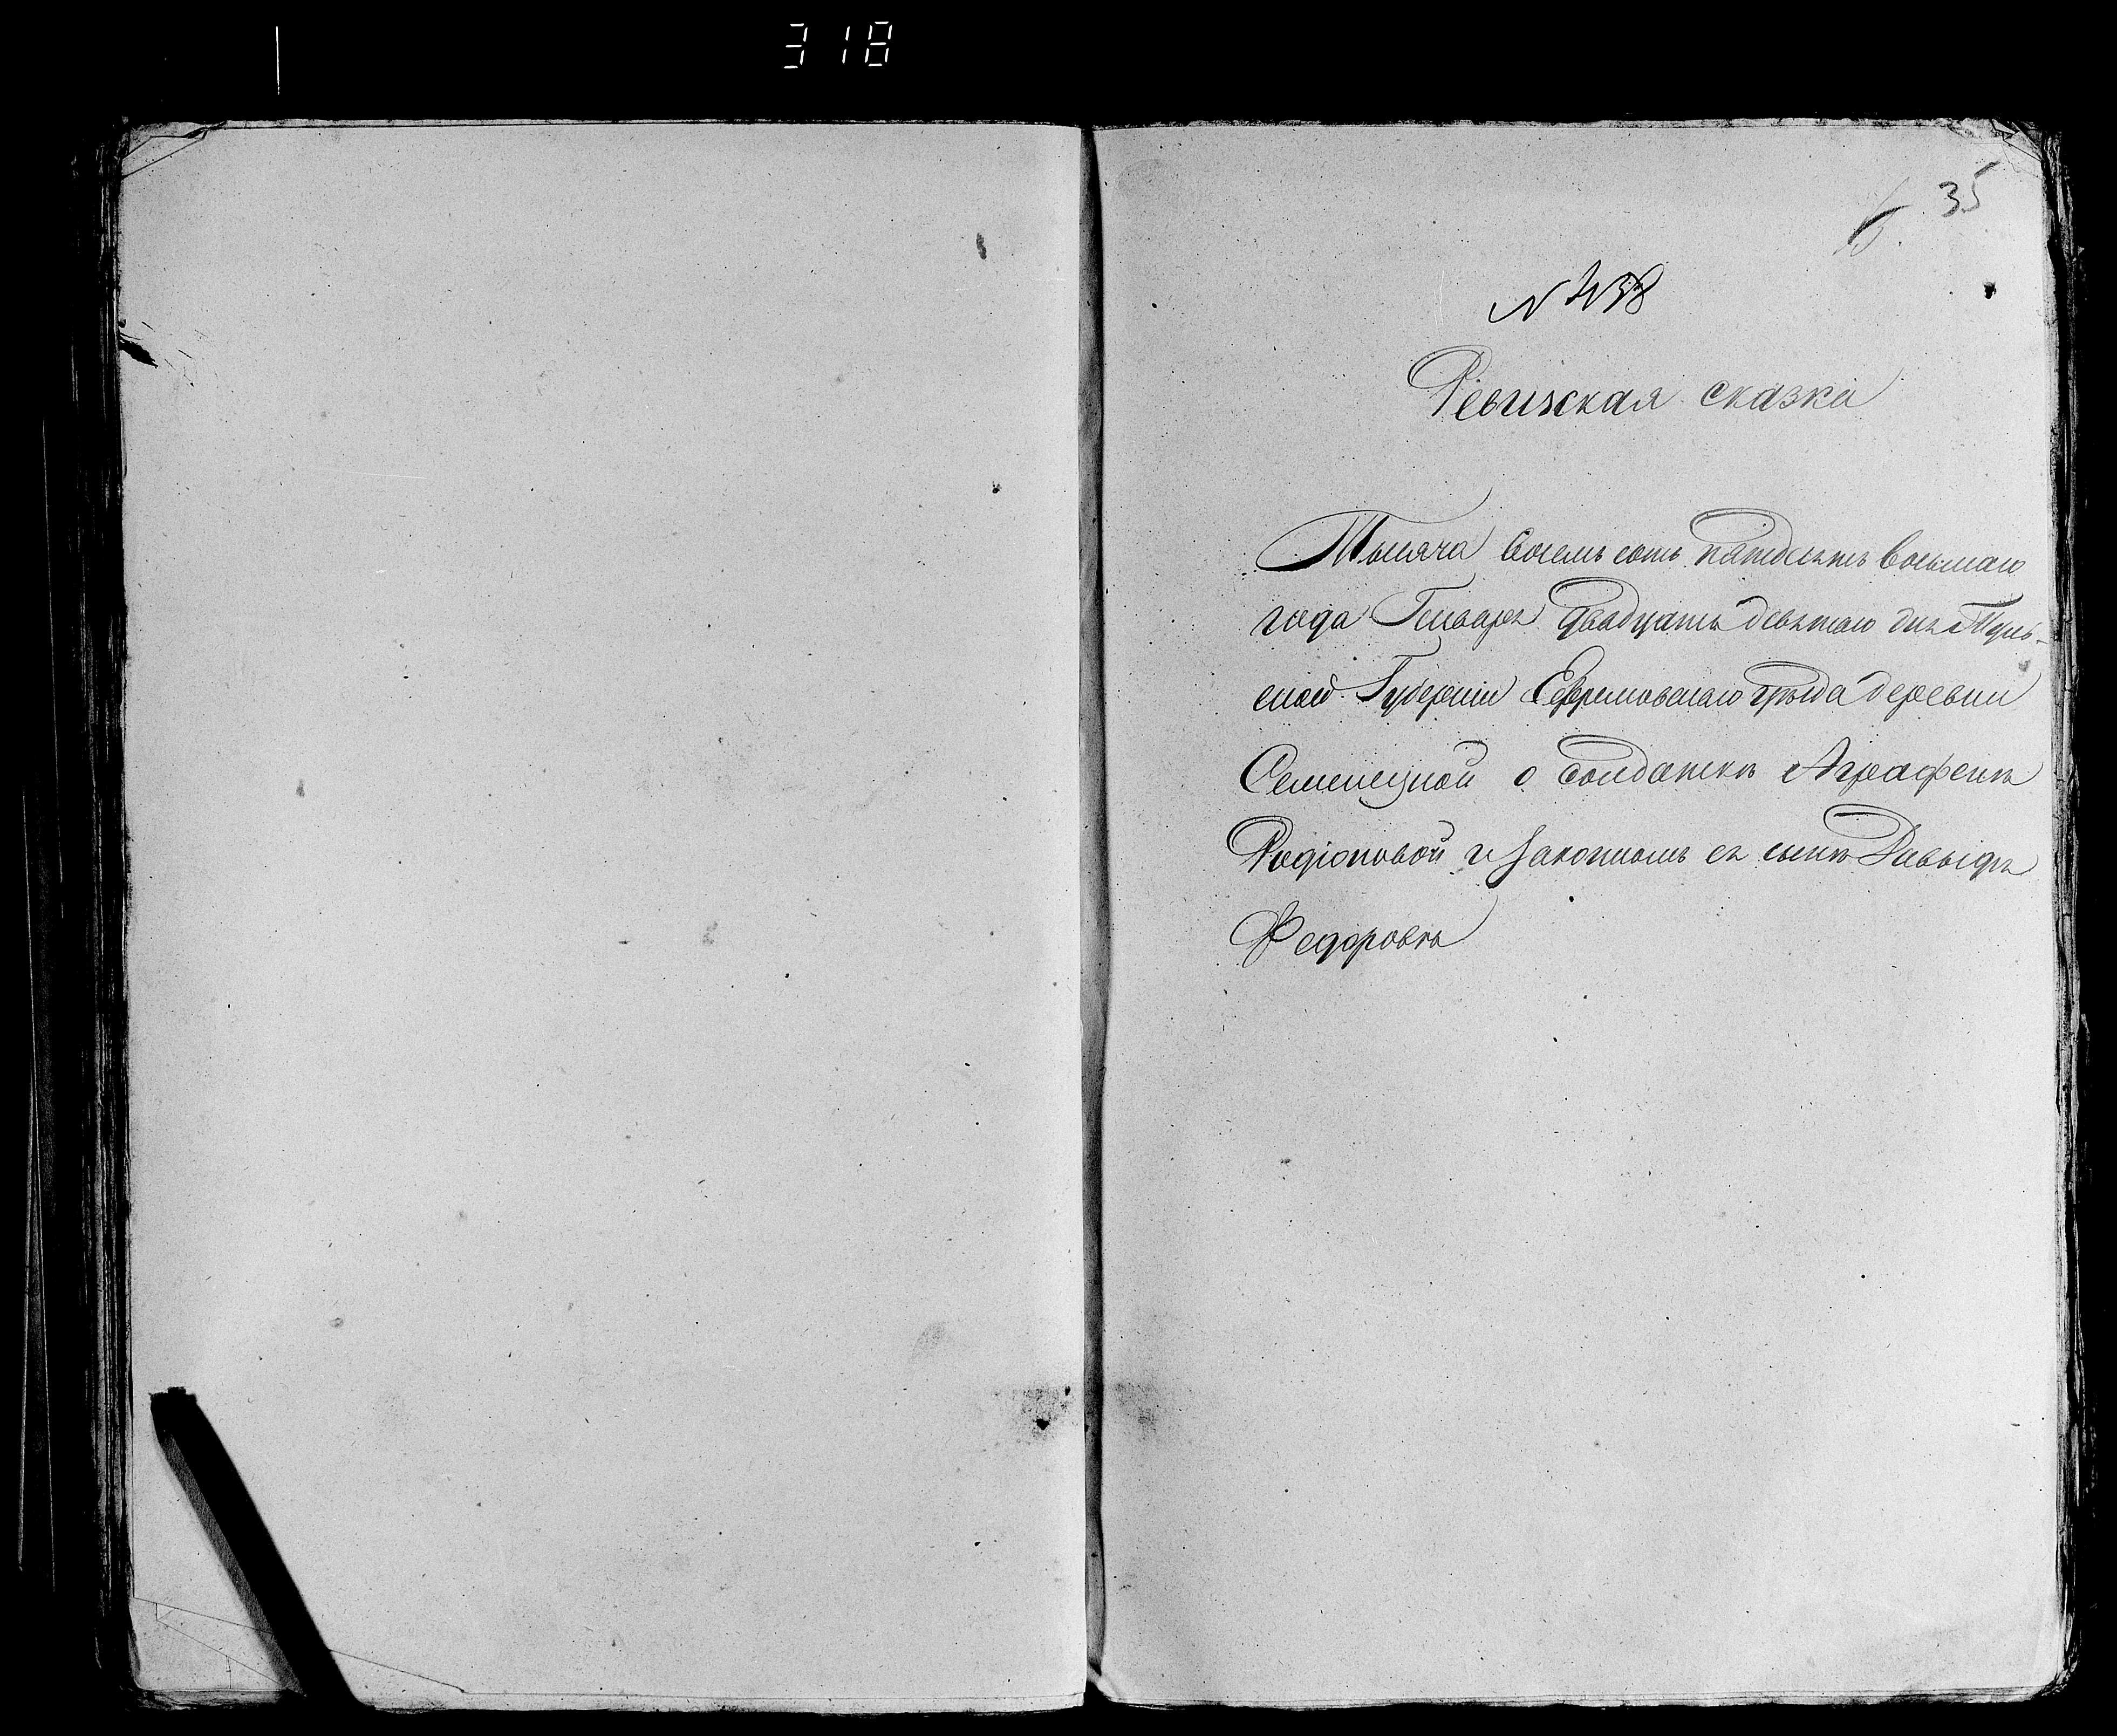 318
35
Ревизская сказка
Тысяча восемь сотъ пятдесятъ восьмаго
года Генваря двадцать девятаго дня Туль-
ской Губерніи Ефремовскаго уѣзда деревни
Семенецкой о солдаткѣ Аграфенѣ
Родіоновой и законномъ ея сынѣ Давыдѣ
Федоровѣ